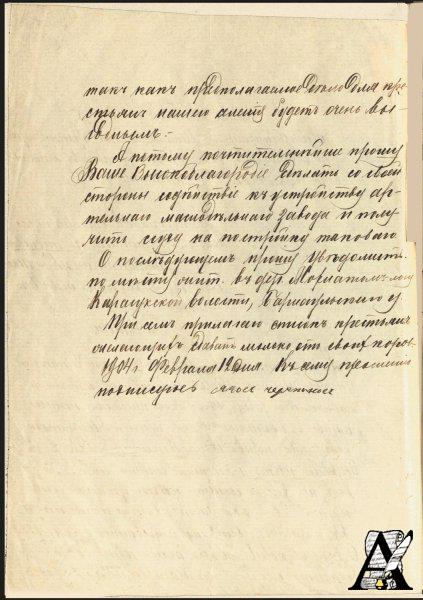 такъ какъ предполагаемое дѣло для кре-
стьянъ нашего селенія будетъ очень вы-
годнымъ.-
А потому почтительнѣйше прошу
Ваше Высокоблагородіе оказать со своей
стороны содѣйствіе къ устройству ар-
тельнаго маслодѣльнаго завода и полу-
чить ссуду на постройку таковаго.
О послѣдующемъ прошу увѣдомить
по мѣсту жит. въ дер.
волости, Барнаульскаго у.
При семъ прилагаю списокъ крестьянъ
давать молоко отъ своихъ коров.
1904 г. Февраля 12 дня. Къ сему прошенію
подписуюсь